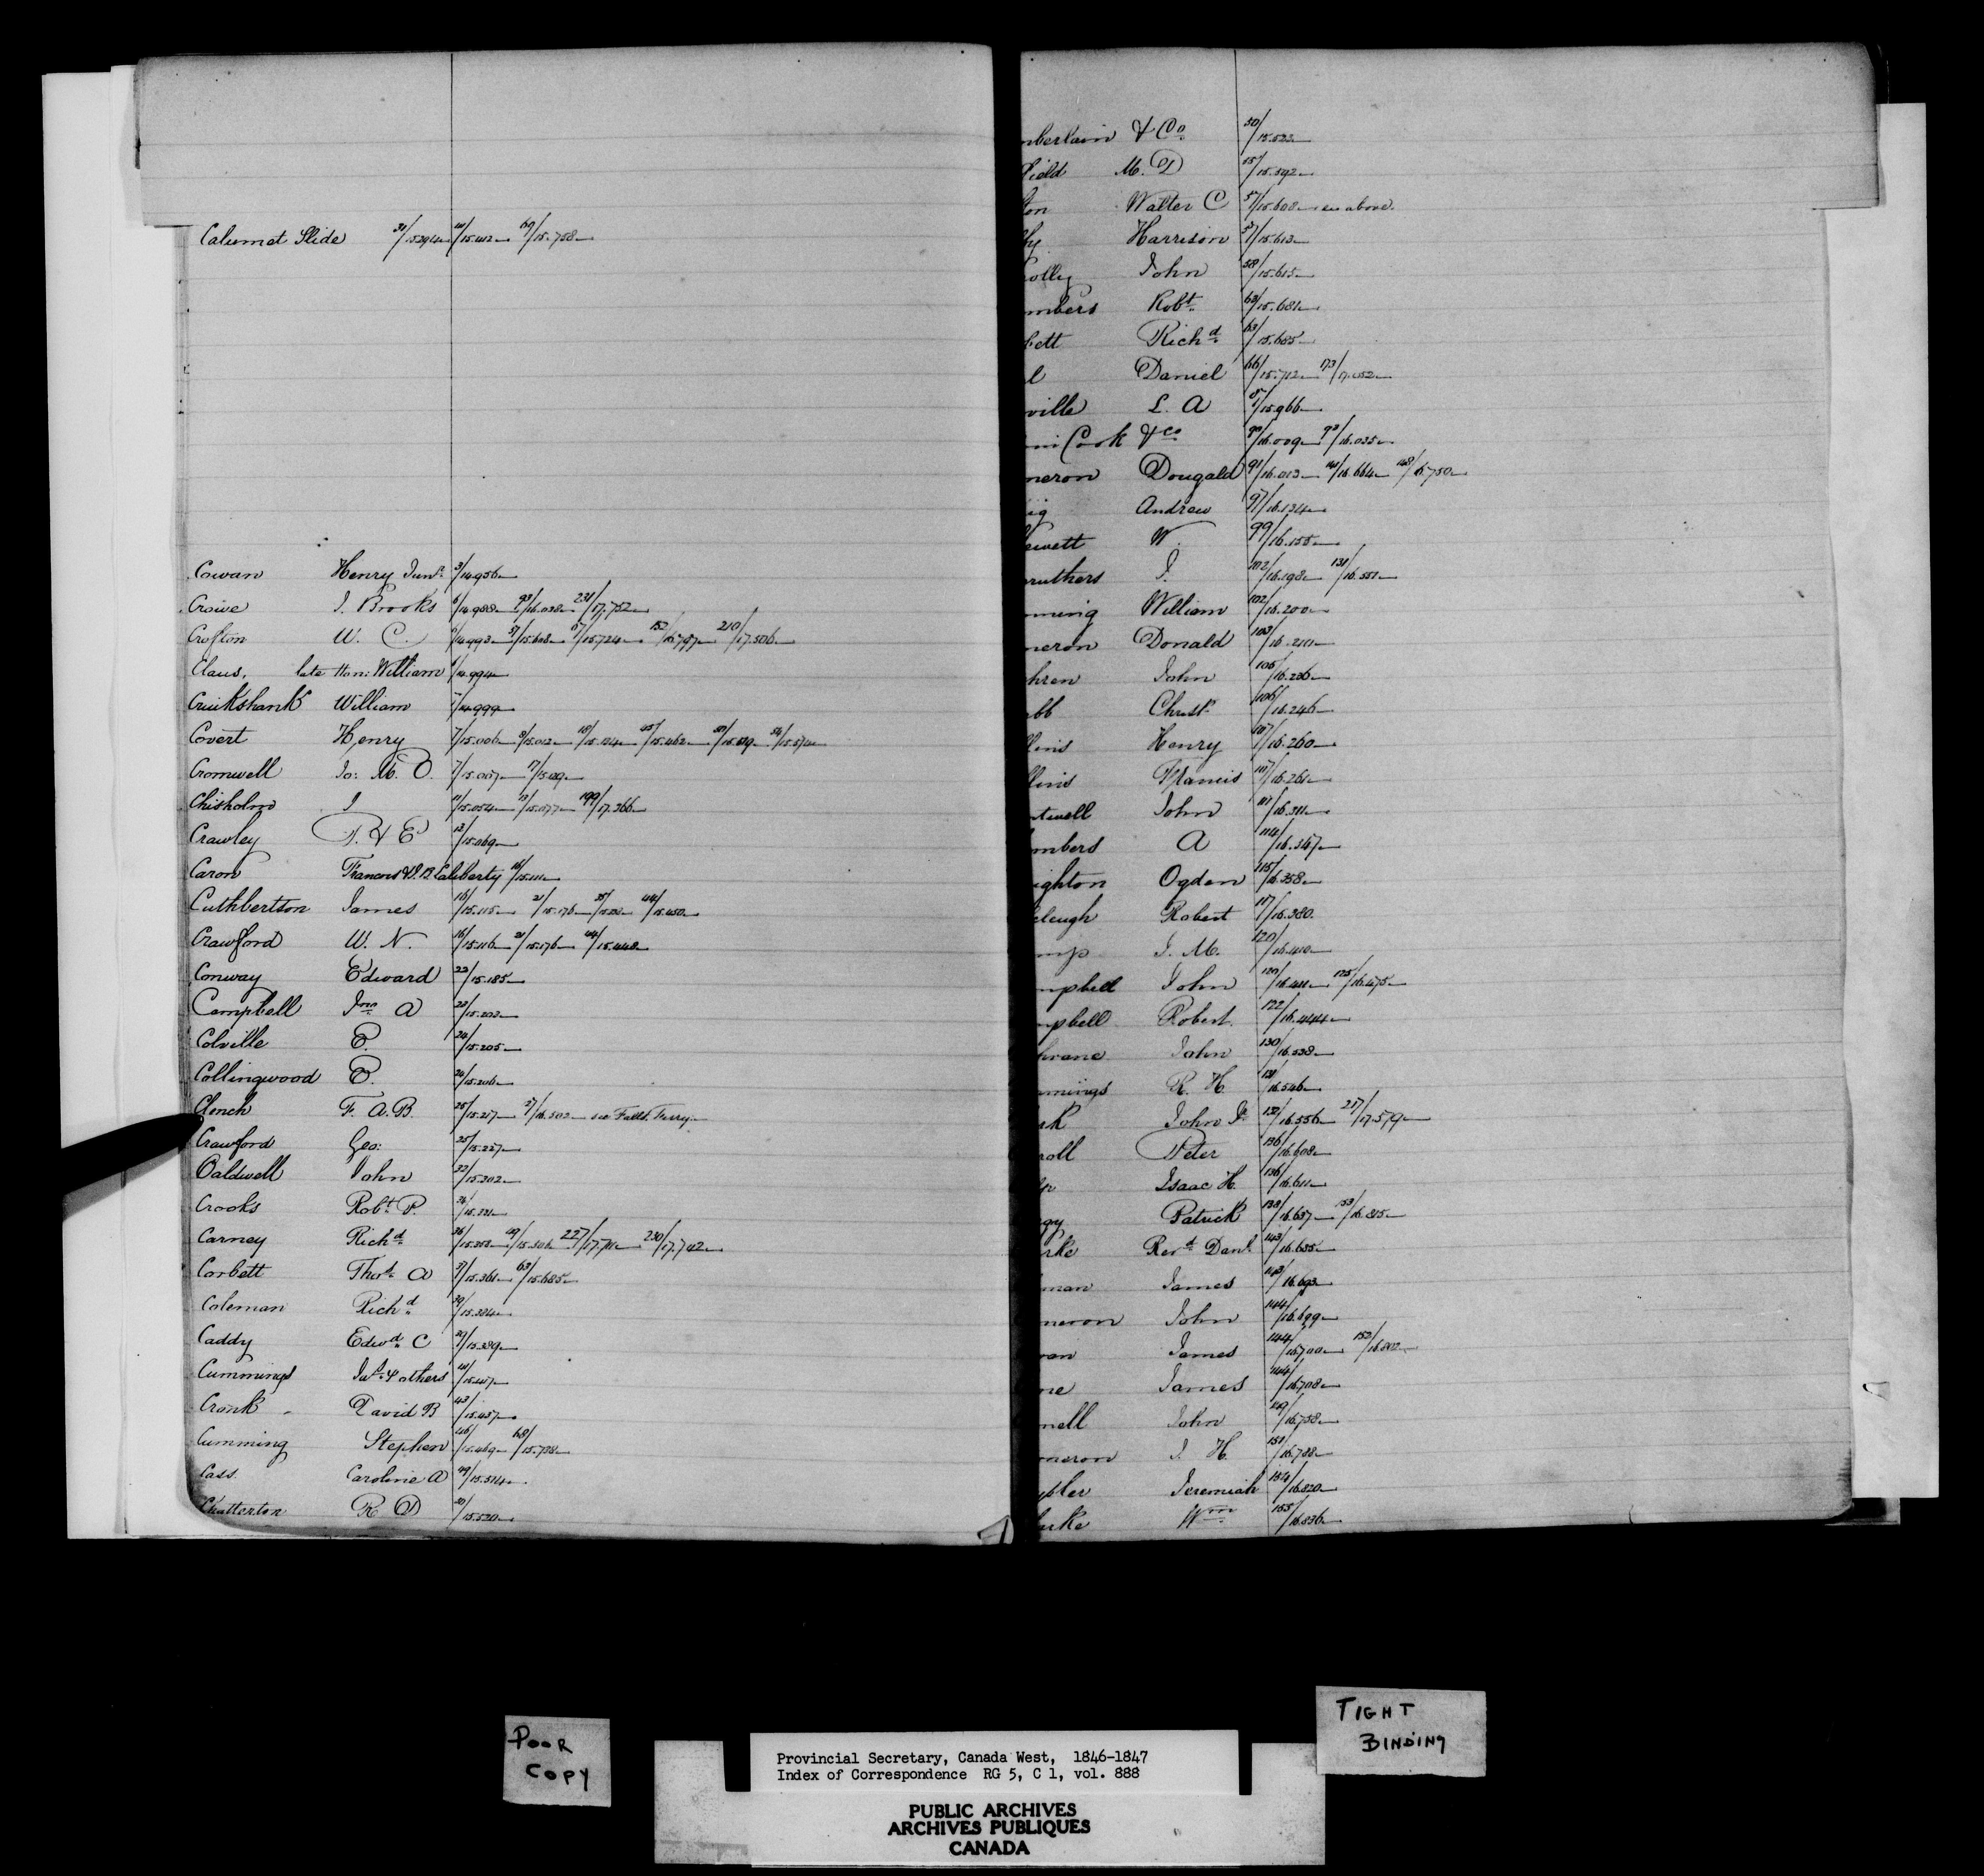 Calumet Slide 31/15.294 41/15.412 69/15.758
Cowan Henry Junr. 3/14.956
Crowe J. Brooks 6/14.988 93/16.038 231/17.752
Crofton W. C. 6/14.993 57/15.608 67/15.724 152/16.797 210/17.506
Claus, late Hon: William 6/14.994
Cruikshank William 7/14.999
Covert Henry 7/15.006 8/15.012 18/15.134 45/15.462 50/15.519 54/15.574
Cromwell Jo: M. O. 7/15.007 17/15.129
Chisholm J 11/15.054 13/15.077 199/17.366
Crawley P. & E 13/15.069
Caron Francois & J. B. Laliberty 16/15.111
Cuthbertson James 16/15.115 21/15.176 44/15.450
Crawford W. N. 16/15.116 21/15.176 44/15.448
Conway Edward 22/15.185
Campbell Jno. A 23/15.203
Colville E. 24/15.205
Collingwood E. 24/15.206
Clench F. A. B. 25/15.217 27/16.502 see Falls Ferry
Crawford Geo: 25/15.227
Caldwell John 32/15.302
Crooks Robt. P. 34/15.331
Carney Richd. 36/15.353 49/15.506 227/17.711 230/17.742
Corbett Thos. A 37/15.361 63/15.685
Coleman Richd 39/15.384
Caddy Edwd. C 39/15.389
Cummings Jas. & others 41/15.417
Cronk David B 43/15.437
Cumming Stephen 46/15.469 68/15.738
Cass Caroline A 49/15.514
Chatterton R D 50/15.520
mberlain & Co. 50/15.522
field M. D 55/15.592
ton Walter C 57/15.608 see above.
hy Harrison 57/15.613
olly John 58/15.615
mbers Robt. 63/15.681
bett Richd. 63/15.685
l Daniel 66/15.712 173/17.052
ville L. A 87/15.966
Cook & Co 90/16.009 93/16.035
meron Dougald 91/16.013 141/16.664 148/16.750
ig Andrew 97/16.134
ewett W. 99/16.155
ruthers J. 102/16.198 131/16.551
ming William 102/16.200
meron Donald 103/16.211
hren John 105/16.236
bb Christr. 106/16.246
lins Henry 107/16.260
lins Francis 107/16.261
twell John 111/16.311
mbers A 114/16.347
ighton Ogden 115/16.358
cleugh Robert 117/16.380
mp J. M. 120/16.410
mpbell John 120/16.411 125/16.475
mpbell Robert 122/16.444
hrane John 130/16.538
mmings R. H. 131/16.546
rk John Jr. 132/16.556 217/17.579
roll Peter 136/16.608
Isaac H. 136/16.611
gy Patrick 138/16.637 153/16.815
rke Revd. Danl. 143/16.685
man James 143/16.693
meron John 144/16.699
van James 144/16.700 153/16.802
ne James 144/16.708
nell John 149/16.758
meron J. H. 151/16.788
pler Jeremiah 154/16.820
arke Wm 155/16.836
POOR COPY
TIGHT BINDING
Provincial Secretary, Canada West, 1846-1847
Index of Correspondence RG 5, C 1, vol. 888
PUBLIC ARCHIVES
ARCHIVES PUBLIQUES
CANADA